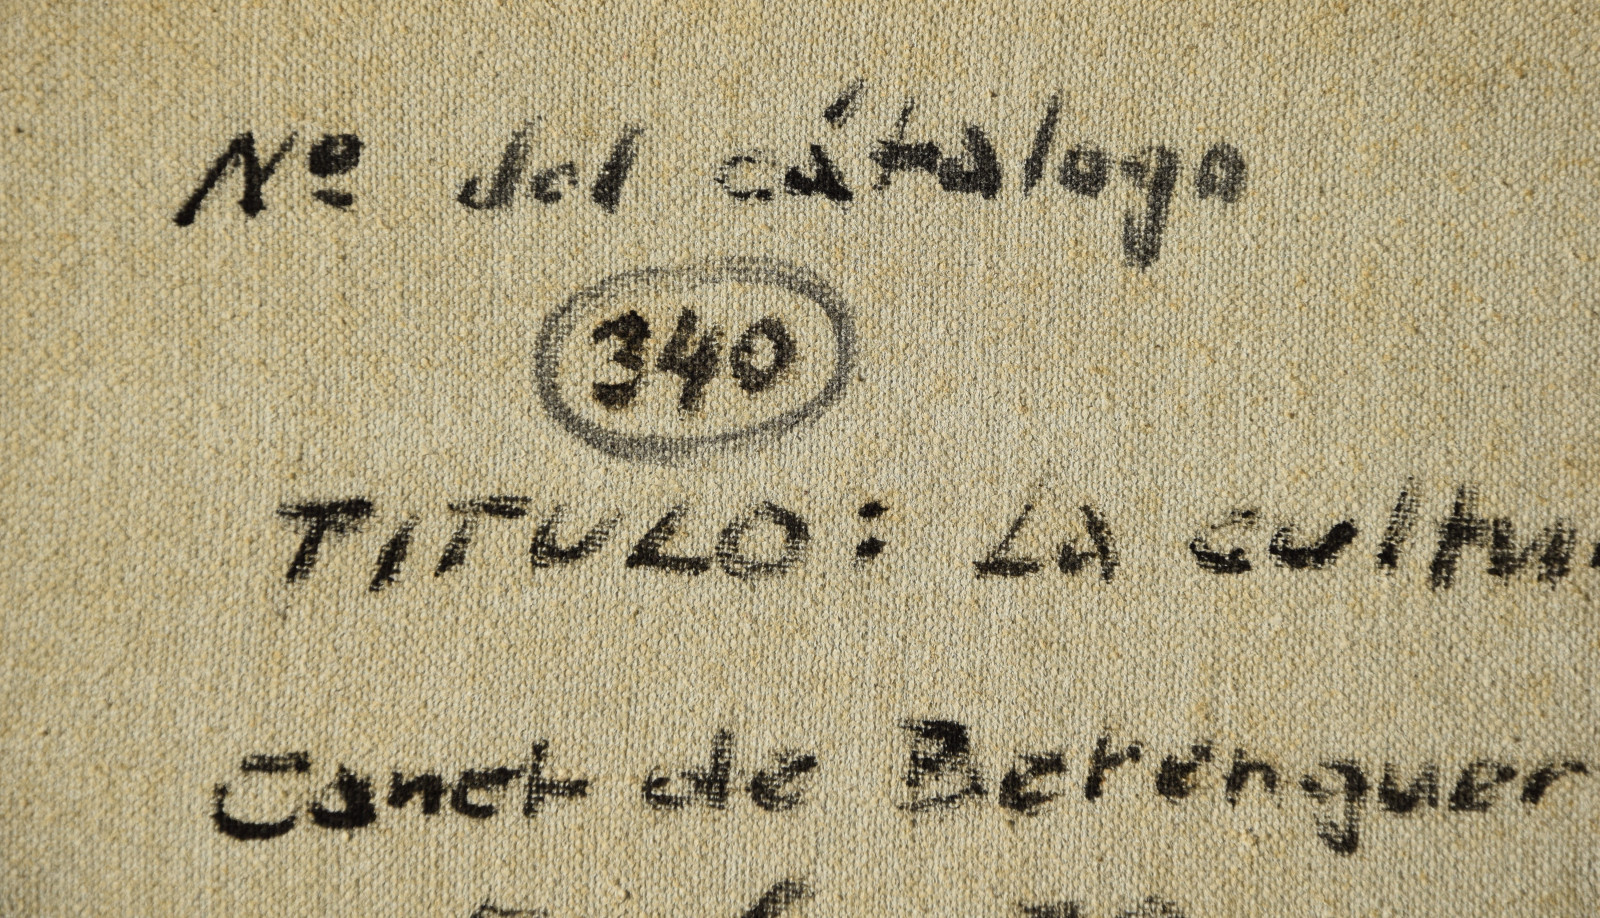 Nº del cátalogo
340
TITULO: La cultur
Canet de Berenguer